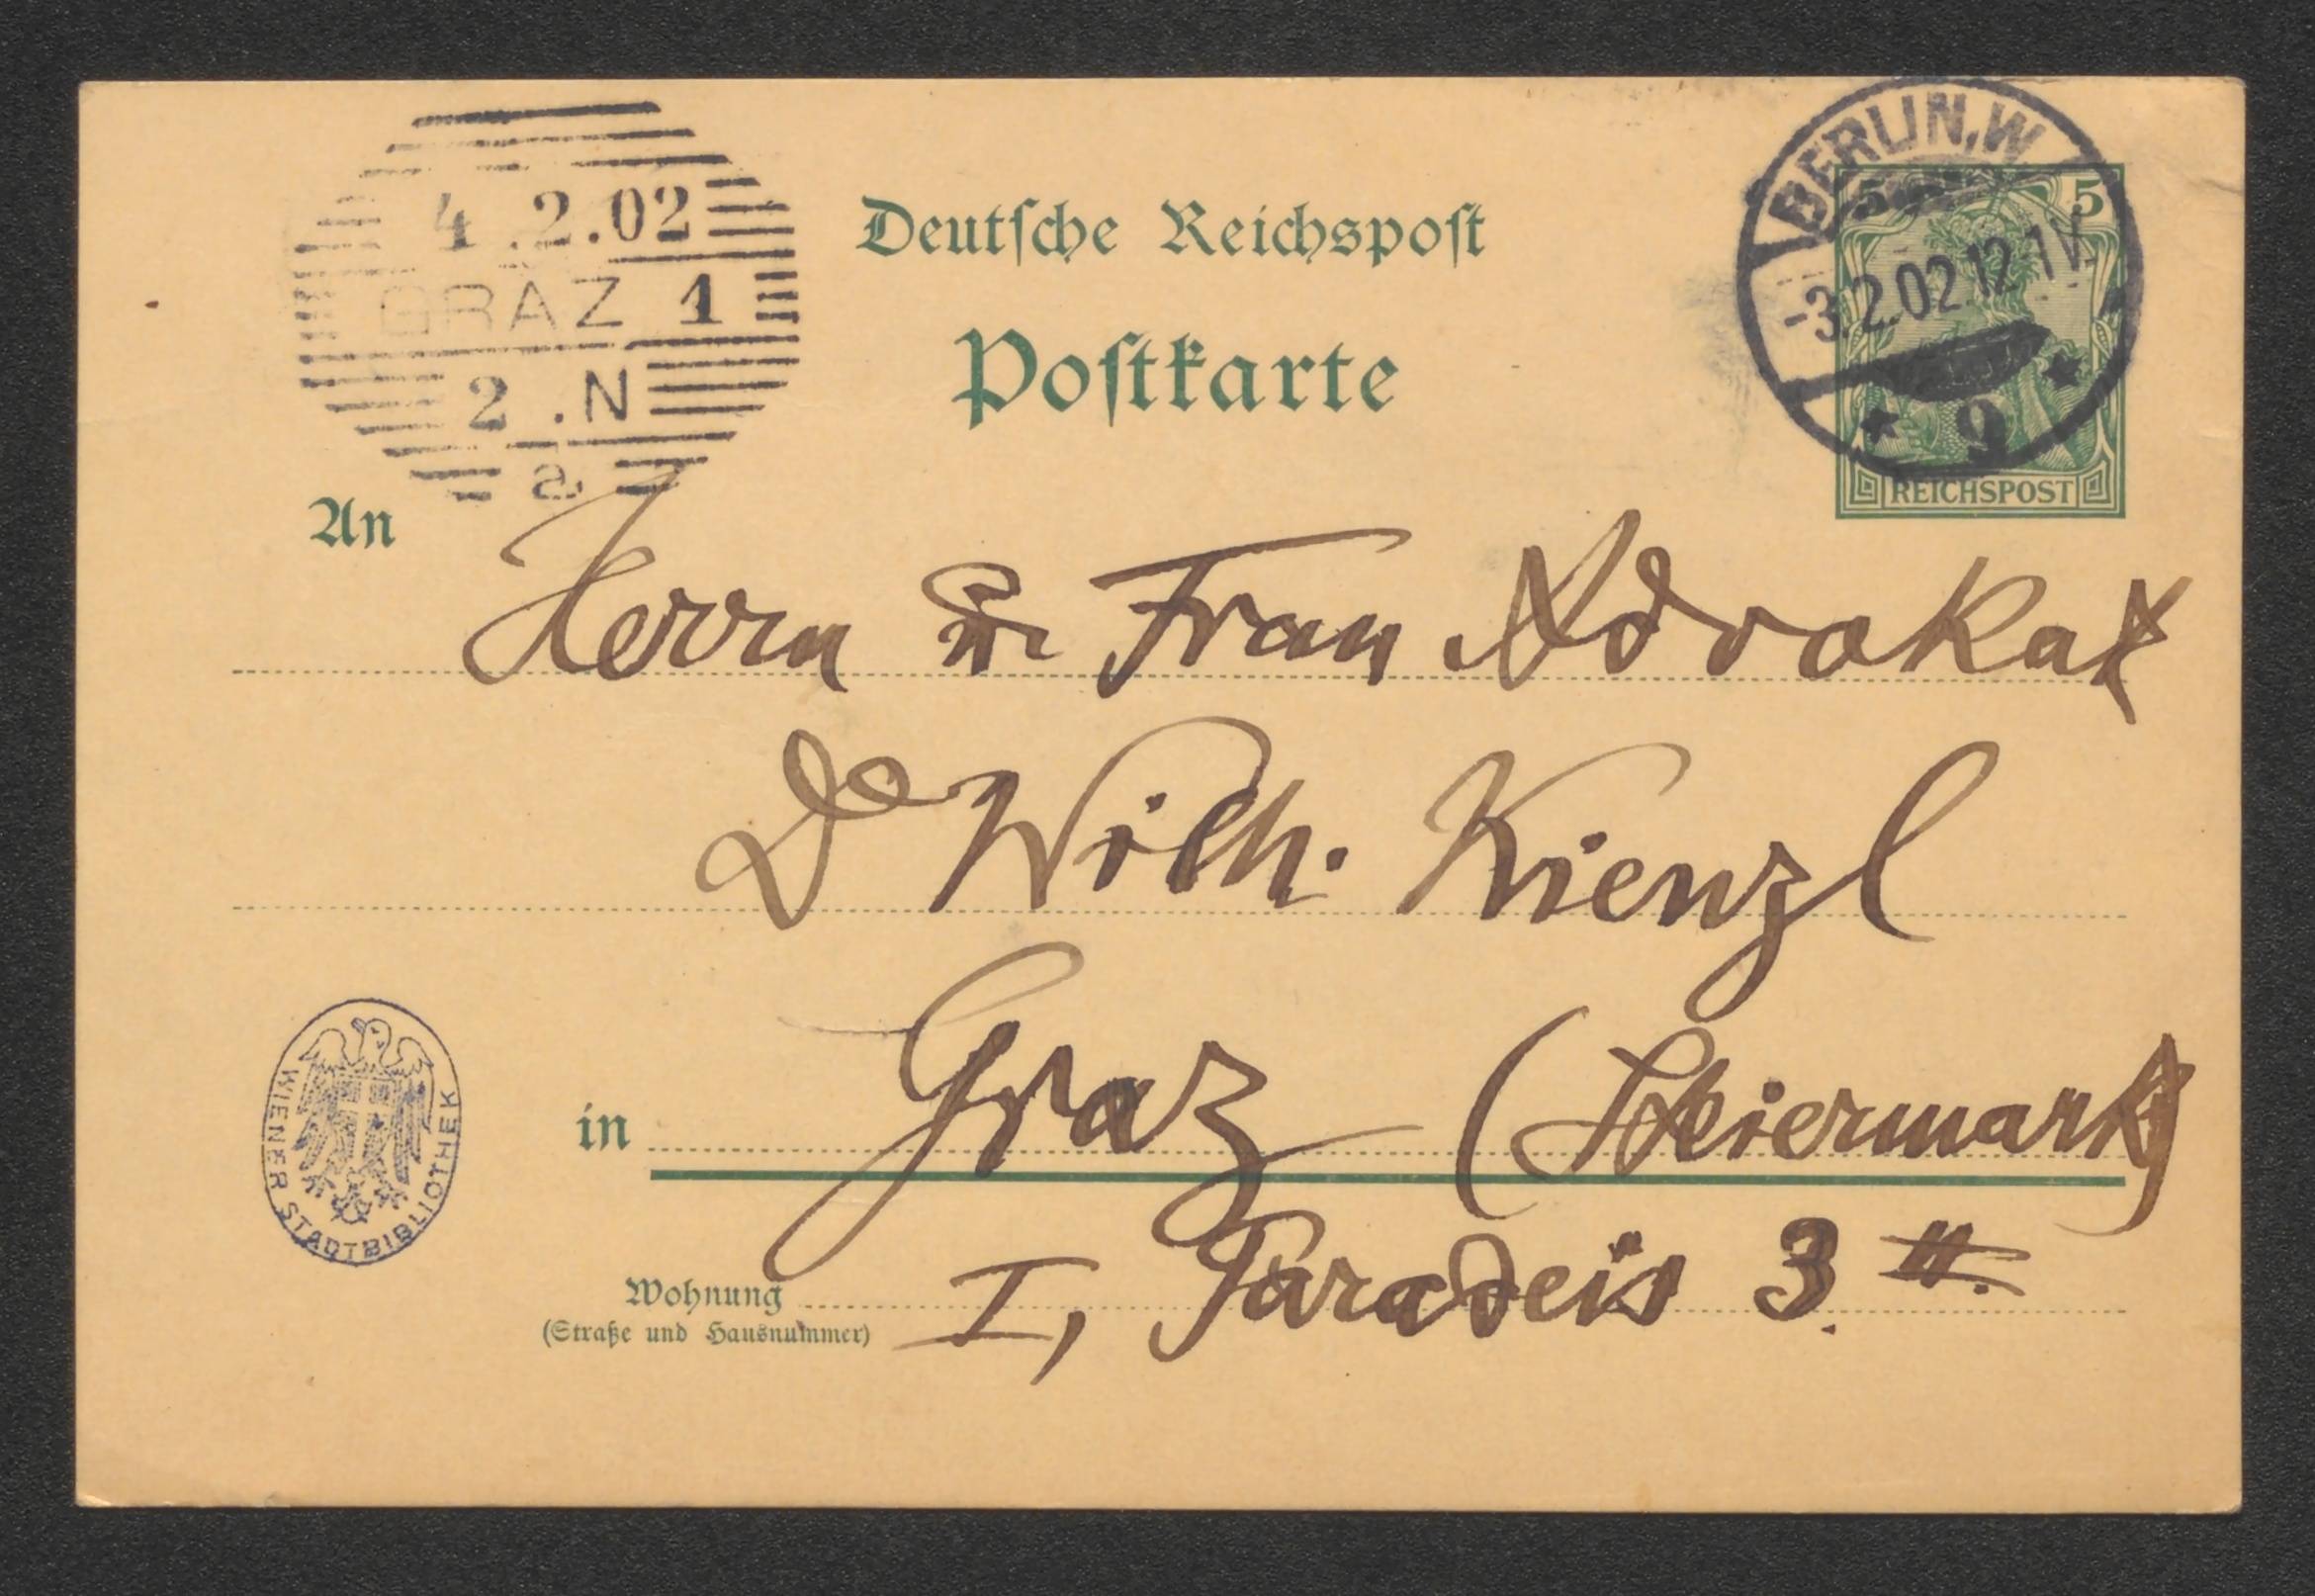 4.2.02
GRAZ 1
2.N
a
Deutsche Reichspost
Postkarte
BERLIN, W
-3.2.02.12-1V.
* 9 *
5 5
REICHSPOST
An Herrn u. Frau Advokat
Dr Wilh. Kienzl
in Graz (Steiermark)
Wohnung
(Straße und Hausnummer)
I, Paradeis 3 II.
WIENER STADTBIBLIOTHEK